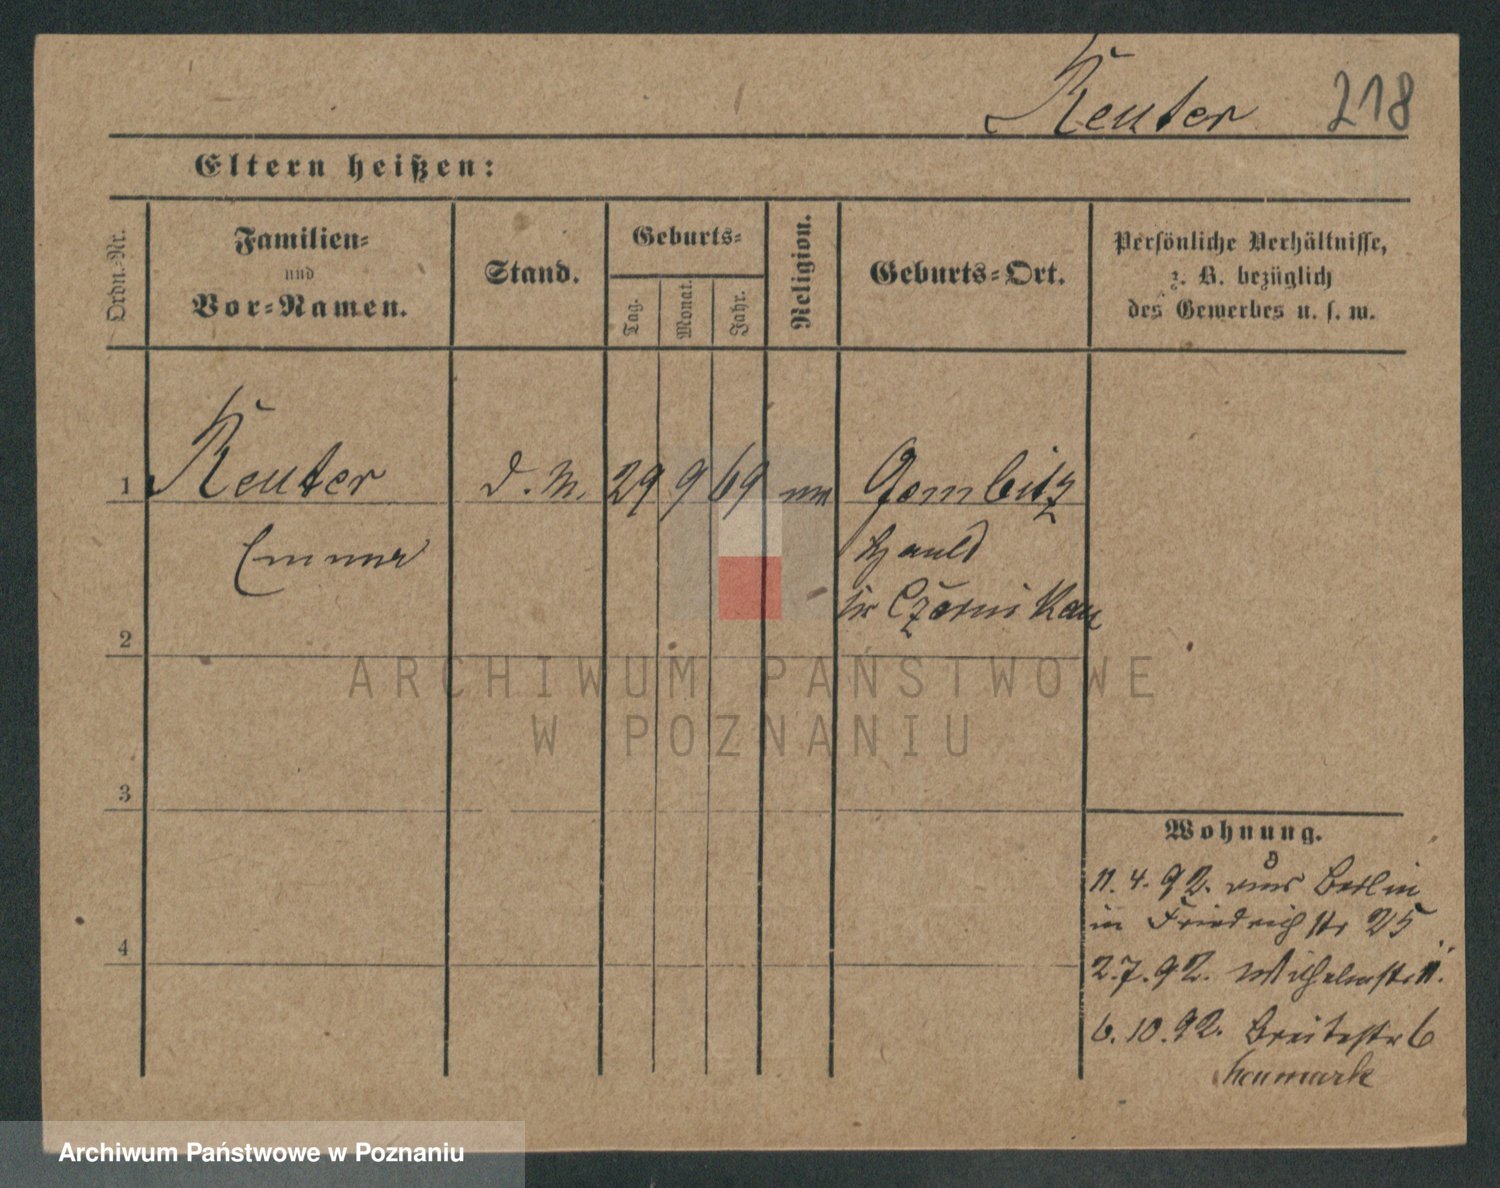 Reuter 218
Eltern heißen:
Ordn.-Nr.
Familien-
und
Vor-Namen.
Stand.
Geburts-
Tag.
Monat.
Jahr.
Religion.
Geburts-Ort.
Persönliche Verhältnisse,
z. B. bezüglich
des Gewerbes u. s. w.
1 Reuter d. M. 29 9 69 Gembitz
Emma Hauld
Kr Czarnikau
2
3
4
Wohnung.
11. 4. 92. aus Berlin
in Friedrichstr 25
2. 7. 92. Wilhelmstr 11.
6. 10. 92. Breitestr 6
ARCHIWUM PAŃSTWOWE
W POZNANIU
Archiwum Państwowe w Poznaniu